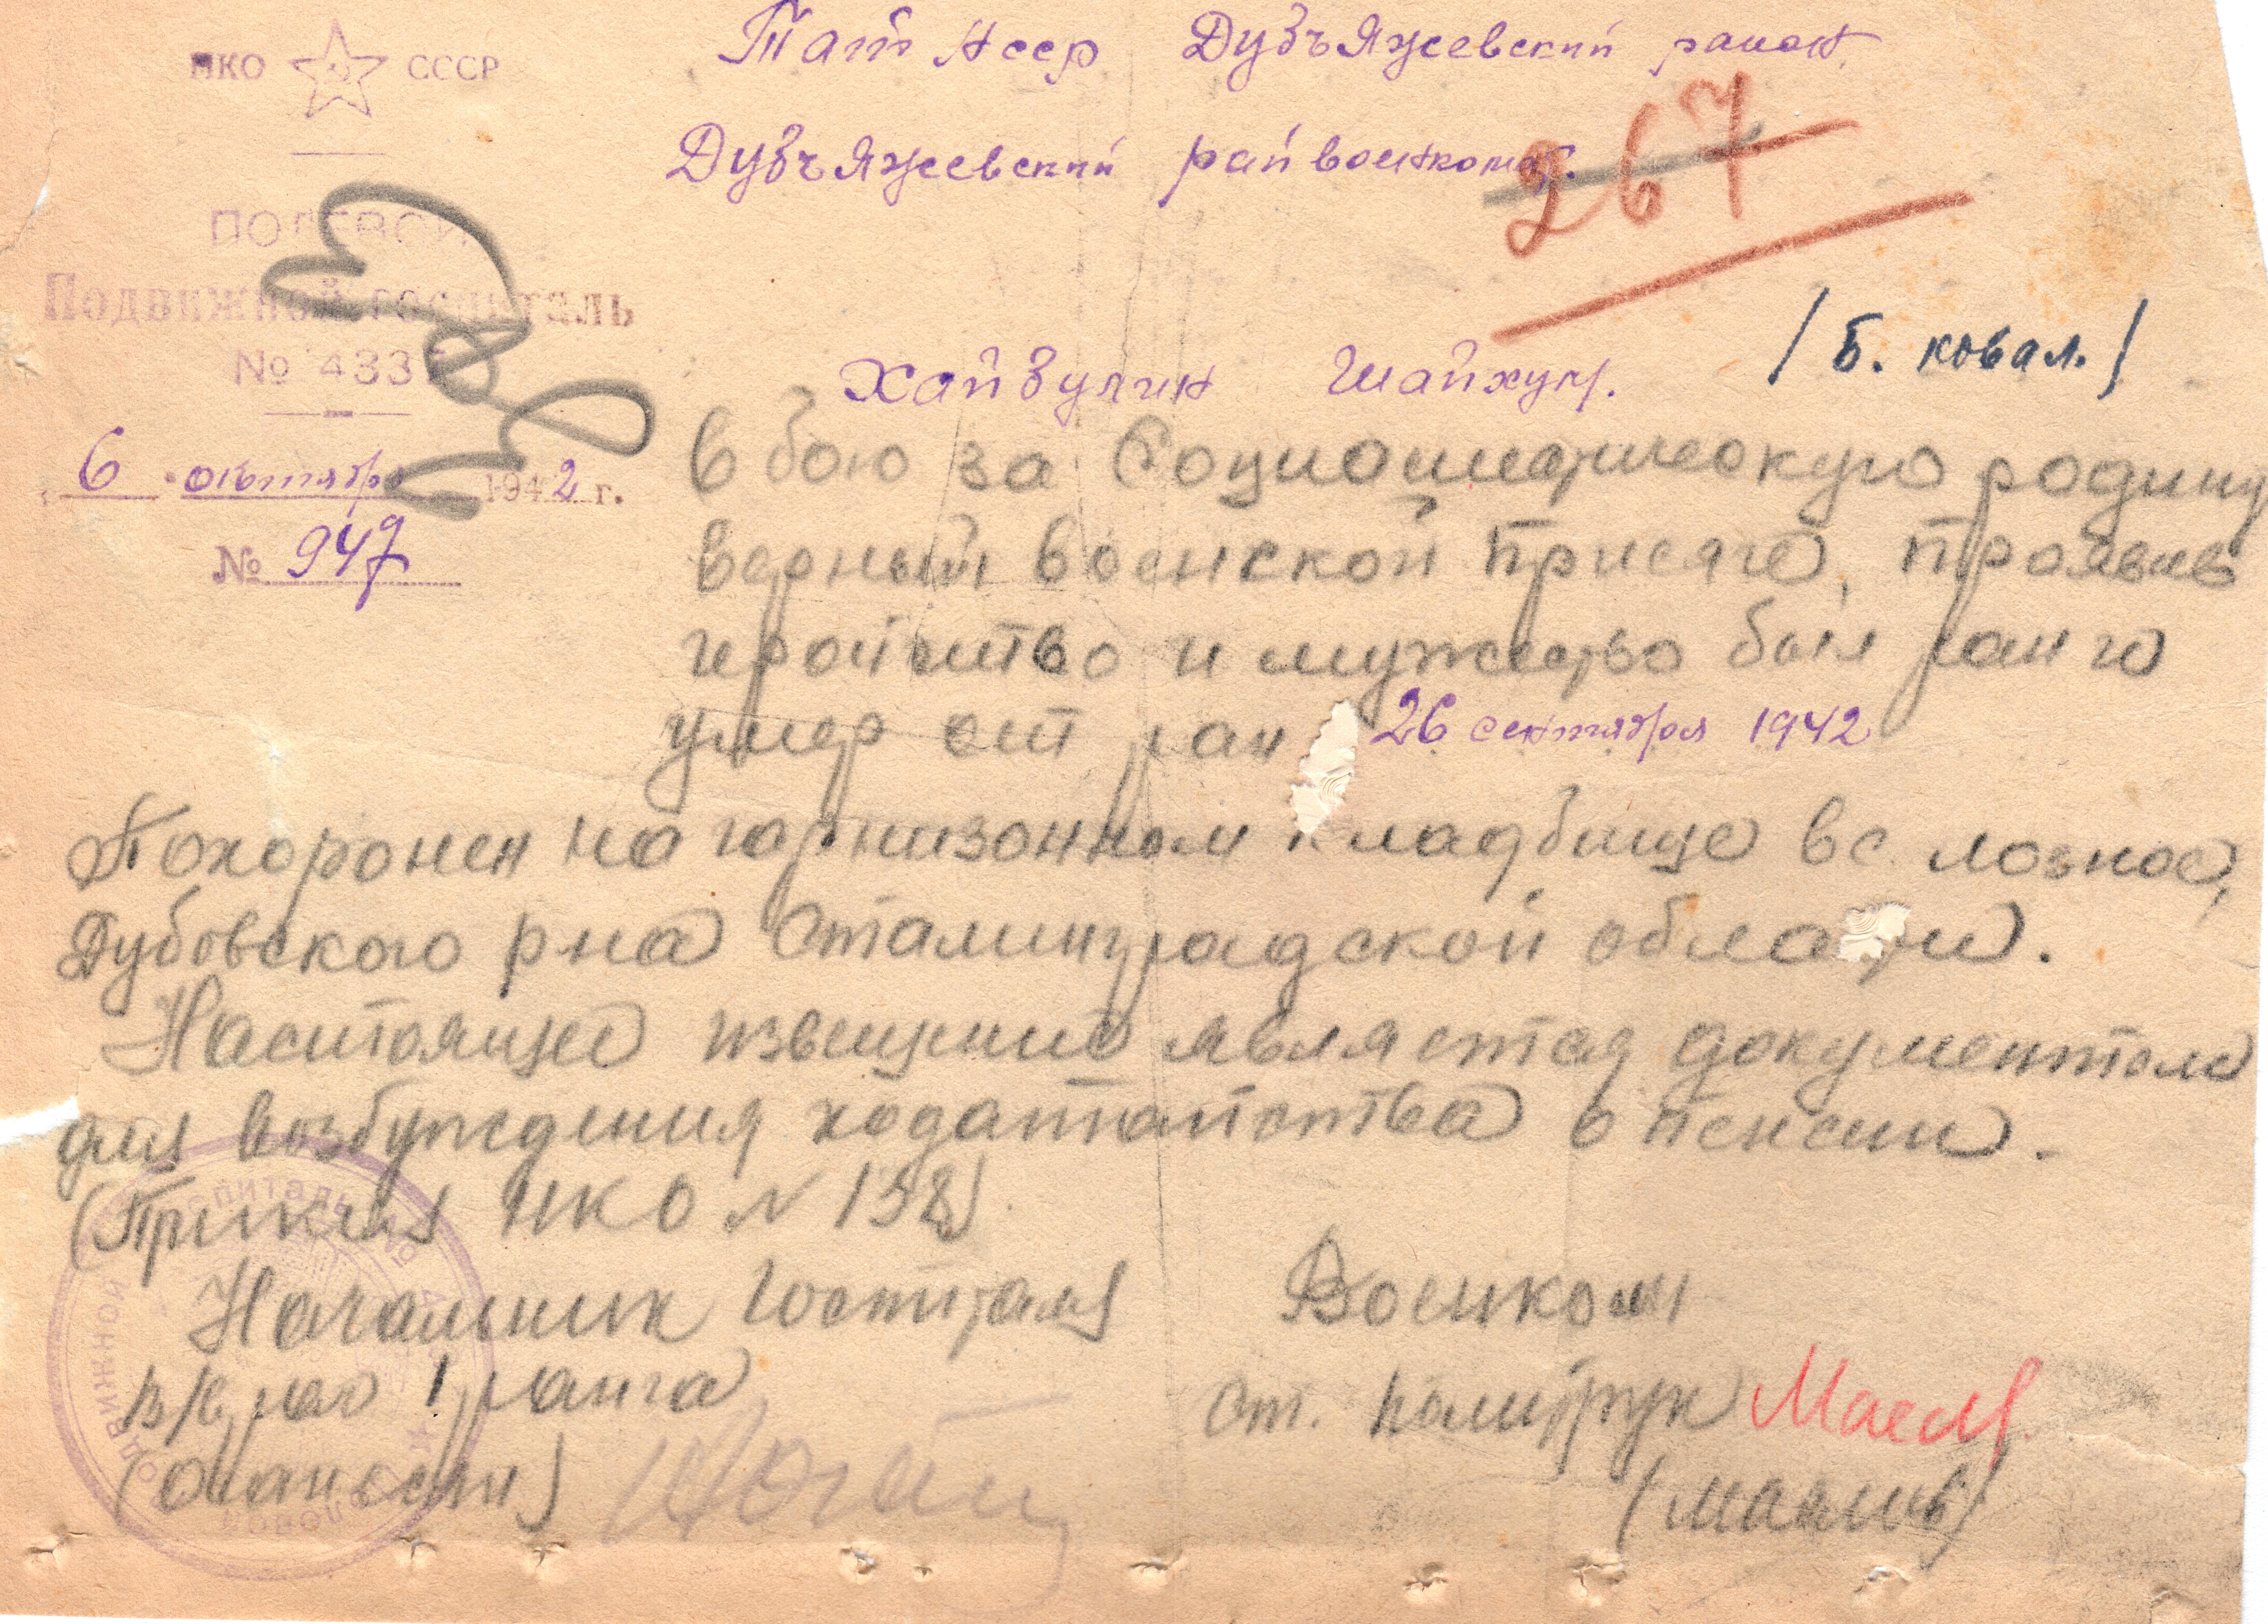 НКО СССР
ПОЛЕВОЙ
Подвижной госпиталь
№ 433
6 октября 1942 г.
№ 947
Тат Асср Дубъяжевский район
Дубъяжевский райвоенкомат.
267
Хайбулин Шайхут.
/ Б. ковал. /
в бою за Социолистическую родину
верный воинской присяге, проявив
геройство и мужество был ранго
умер от ран 26 сентября 1942
Похоронен на гарнизонном кладбище в с. лозное,
Дубовского рна Сталинградской области.
Настоящее извещение является документом
для возбуждения ходатайства о пенсии.
(Приказ НКО № 138)
Начальник Госпиталя
в/врач 1 ранга
(Оганесян)
Военком
ст. политрук